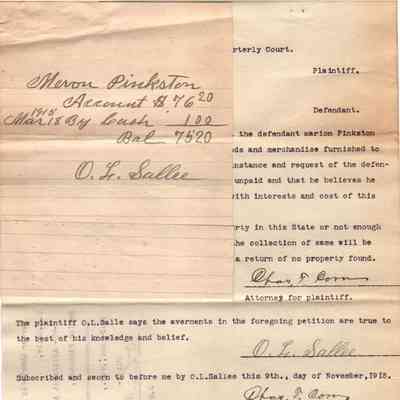 Meron Pinkston
Account $ 76 20
1915
Mar 18 By Cash 1 00
Bal 75 20
O. L. Sallee
rterly Court.
Plaintiff.
Defendant.
the defendant marion Pinkston
ds and merchandise furnished to
instance and request of the defen-
unpaid and that he believes he
with interests and cost of this
erty in this State or not enough
the collection of same will be
a return of no property found.
Chas. F.
Attorney for plaintiff.
The plaintiff O.L.Salle says the averments in the foregoing petition are true to
the best of his knowledge and belief.
O. L. Sallee
Subscribed and sworn to before me by O.L.Sallee this 9th., day of November,1915.
Chas. F.